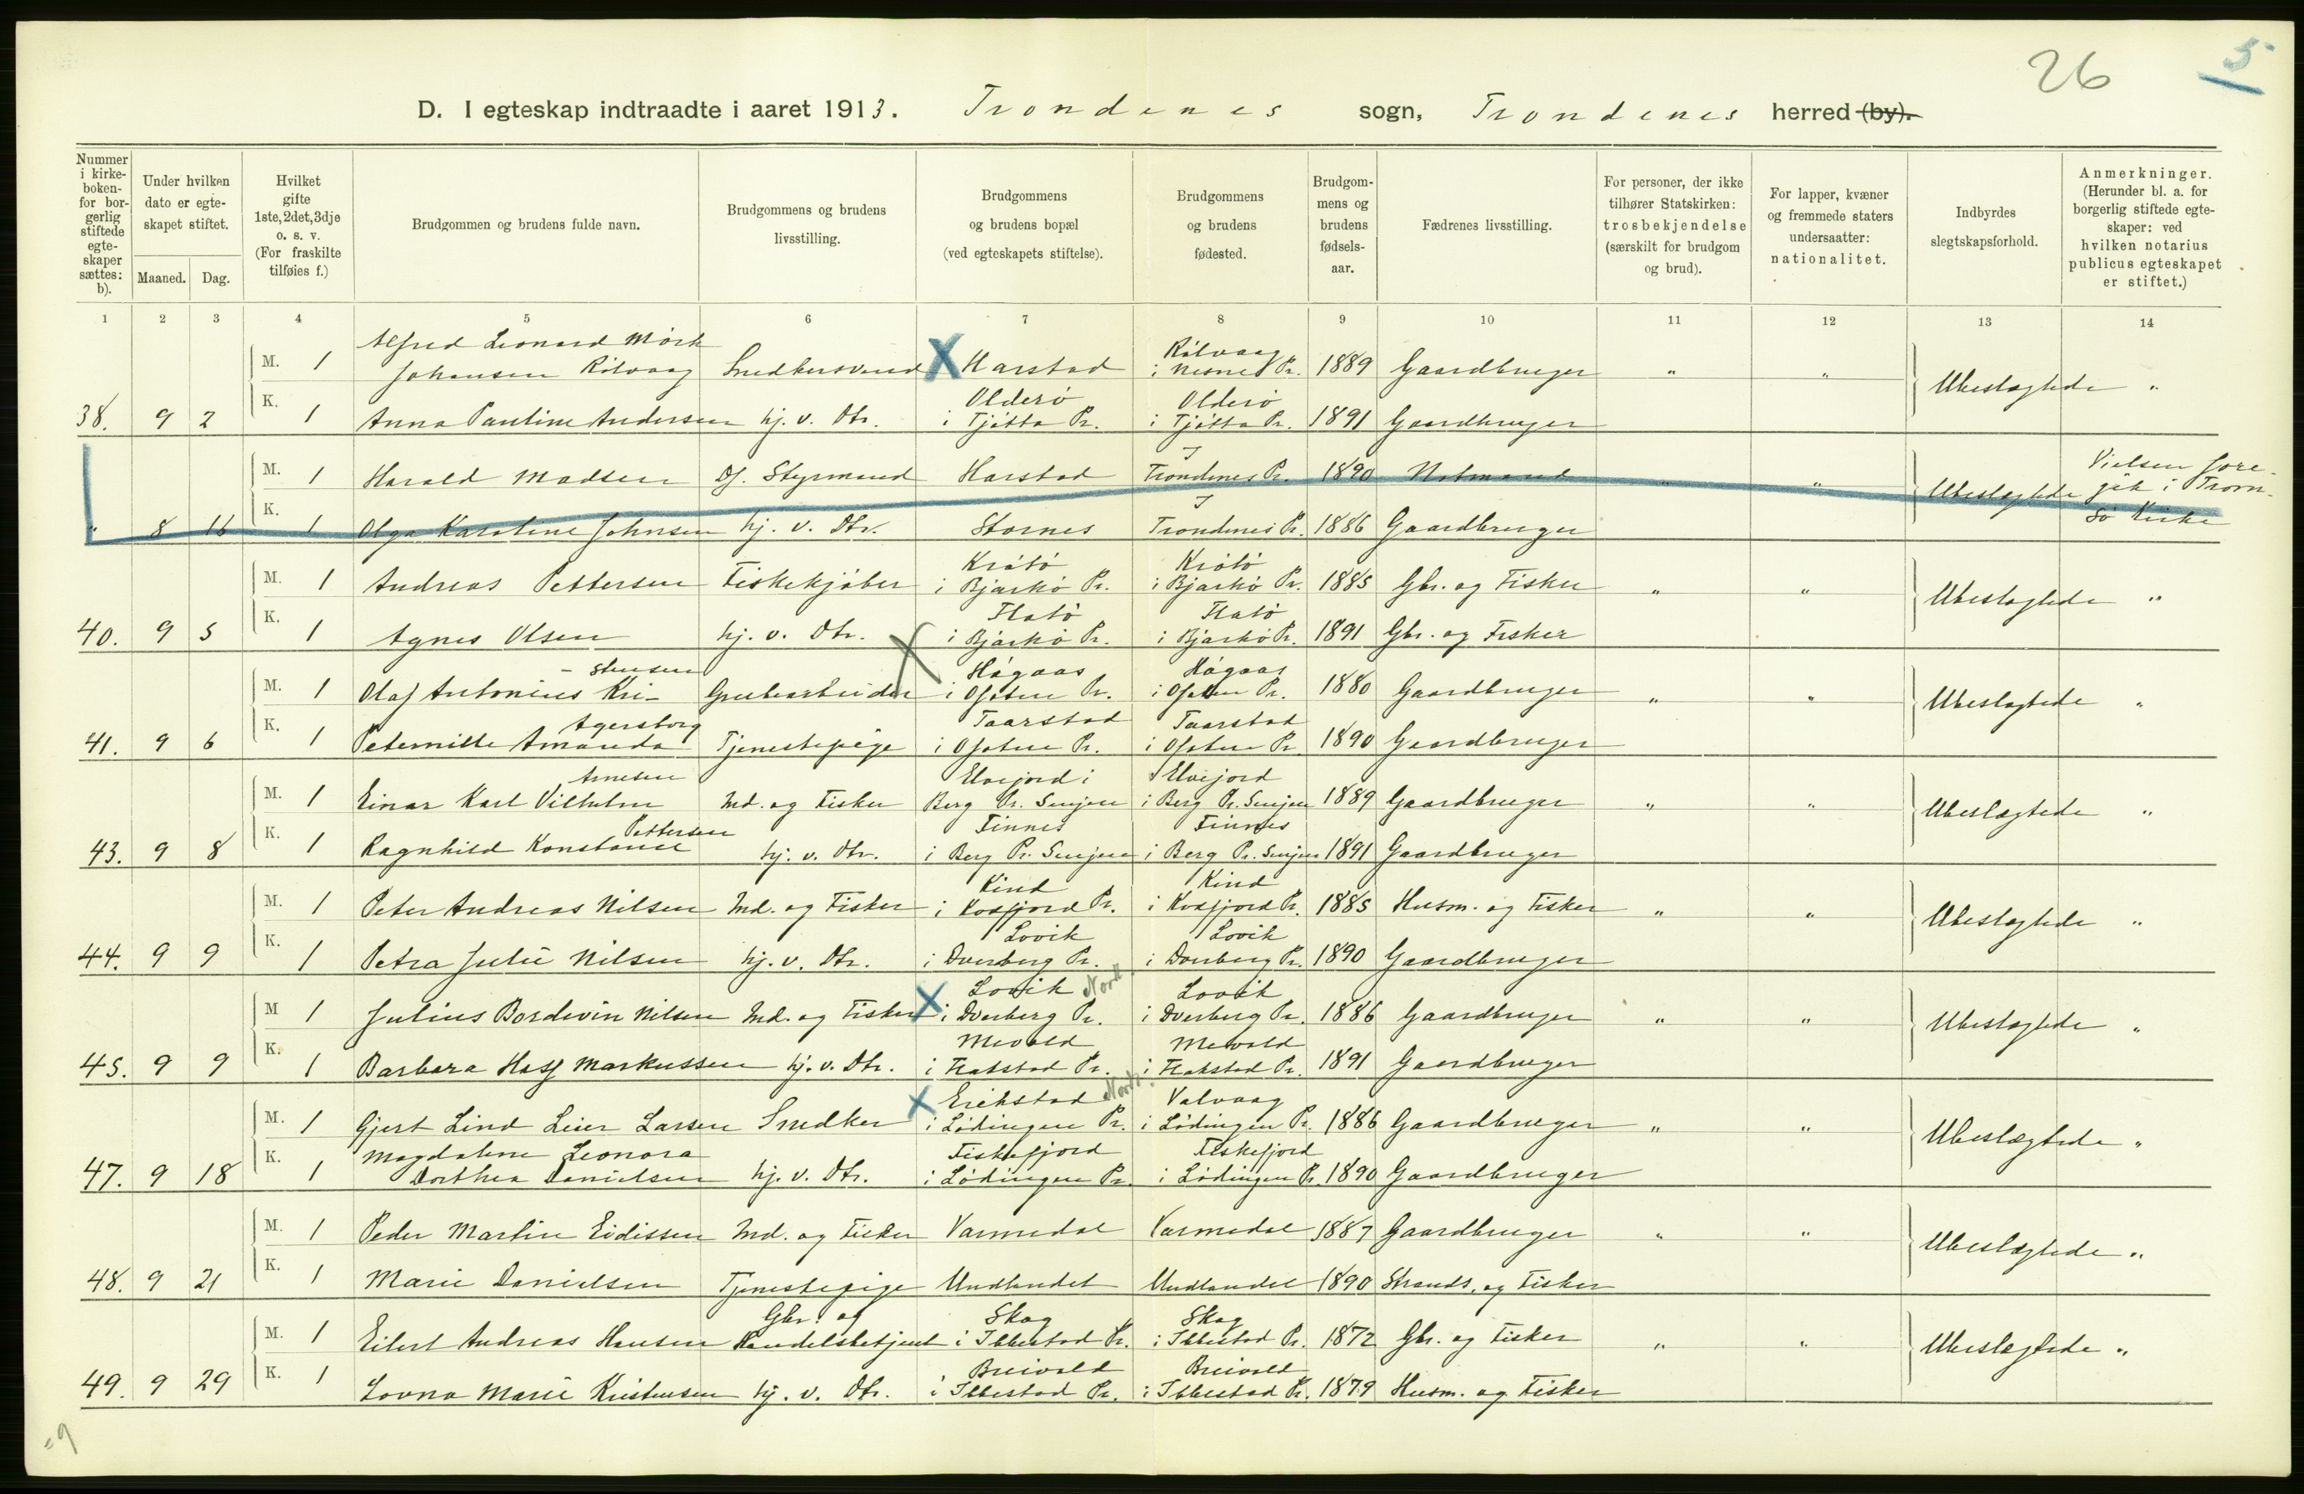 26
5
D. I egteskap indtraadte i aaret 1913. Trondenes sogn, Trondenes herred (by).
Nummer i kirke-boken- for bor-gerlig stiftede egte-skaper sættes: b).
Under hvilken dato er egte-skapet stiftet.
Maaned. Dag.
Hvilket gifte 1ste, 2det, 3dje o. s. v. (For fraskilte tilføies f.)
Brudgommen og brudens fulde navn.
Brudgommens og brudens livsstilling.
Brudgommens og brudens bopæl (ved egteskapets stiftelse).
Brudgommens og brudens fødested.
Brudgom-mens og brudens fødsels-aar.
Fædrenes livsstilling.
For personer, der ikke tilhører Statskirken: trosbekjendelse (særskilt for brudgom og brud).
For lapper, kvæner og fremmede staters undersaatter: nationalitet.
Indbyrdes slegtskapsforhold.
Anmerkninger. (Herunder bl. a. for borgerlig stiftede egte-skaper: ved hvilken notarius publicus egteskapet er stiftet.)
1 2 3 4 5 6 7 8 9 10 11 12 13 14
Alfred Leonard Mörk Rölvaag
M. 1 Johansen Rölvaag Snedkersvend X Harstad i Nesne Pr. 1889 Gaardbruger " " Ubeslegtede "
Olderö Olderö
38. 9 2 K. 1 Anna Pauline Andersen hj. v. Dtr. i Tjötta Pr. i Tjötta Pr. 1891 Gaardbruger
M. 1 Harald Madsen Df. Styrmand Harstad Trondenes Pr. 1890 Notmand " " Ubeslegtede Vielsen fore-gik i Trom-sö Kirke
" 8 16 K. 1 Olga Karoline Johnsen hj. v. Dtr. Stornes Trondenes Pr. 1886 Gaardbruger
Krötö Krötö
M. 1 Andreas Pettersen Fiskekjöber i Bjarkö Pr. i Bjarkö Pr. 1885 Gbr. og Fisker " " Ubeslegtede "
Flatö Flatö
40. 9 5 K. 1 Agnes Olsen hj. v. Dtr. i Bjarkö Pr. i Bjarkö Pr. 1891 Gbr. og Fisker
- stensen X Högaas Högaas
M. 1 Olaf Antonius Kri- Grubearbeider i Ofoten Pr. i Ofoten Pr. 1880 Gaardbruger " " Ubeslegtede "
Agersborg Taarstad Taarstad
41. 9 6 K. 1 Peternille Amanda Tjenestepige i Ofoten Pr. i Ofoten Pr. 1890 Gaardbruger
Arnesen Elvejord i Elvejord
M. 1 Einar Karl Vilhelm Ind. og Fisker Berg Pr. Senjen i Berg Pr. Senjen 1889 Gaardbruger " " Ubeslegtede "
Pettersen Finnes Finnes
43. 9 8 K. 1 Ragnhild Konstance hj. v. Dtr. i Berg Pr. Senjen i Berg Pr. Senjen 1891 Gaardbruger
Kind Kind
M. 1 Peter Andreas Nilsen Ind. og Fisker i Kvæfjord Pr. i Kvæfjord Pr. 1885 Husm. og Fisker " " Ubeslegtede "
Lovik Lovik
44. 9 9 K. 1 Petra Julie Nilsen hj. v. Dtr. i Dverberg Pr. i Dverberg Pr. 1890 Gaardbruger
Lovik Nordl. Lovik
M 1 Julius Bordevin Nilsen Ind. og Fisker X i Dverberg Pr. i Dverberg Pr. 1886 Gaardbruger " " Ubeslegtede "
Mevold Mevold
45. 9 9 K. 1 Barbara Hass Markussen hj. v. Dtr. i Flakstad Pr. i Flakstad Pr. 1891 Gaardbruger
Erikstad Valvaag
M. 1 Gjert Lind Leier Larsen Snedker X i Lödingen Pr. i Lödingen Pr. 1886 Gaardbruger " " Ubeslegtede "
Magdalene Leonora Fiskefjord Fiskefjord
47. 9 18 K. 1 Dorthea Danielsen hj. v. Dtr. i Lödingen Pr. i Lödingen Pr. 1890 Gaardbruger
M. 1 Peder Martin Eidissen Ind. og Fisker Varmedal Varmedal 1887 Gaardbruger " " Ubeslegtede "
48. 9 21 K. 1 Marie Danielsen Tjenestepige Undlandet Undlandet 1890 Strands. og Fisker
Gbr. og Skog Skog
M. 1 Eilert Andreas Hansen Handelsbetjent i Ibbestad Pr. i Ibbestad Pr. 1872 Gbr. og Fisker " " Ubeslegtede "
Breivold Breivold
49. 9 29 K. 1 Lovna Marie Kristensen hj. v. Dtr. i Ibbestad Pr. i Ibbestad Pr. 1879 Husm. og Fisker